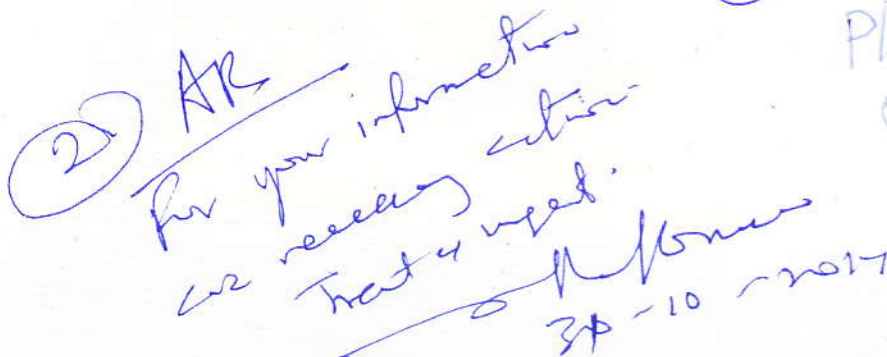 2) AR
for your information
and necessary action.
Treat as urgent.
30-10-2017
P/